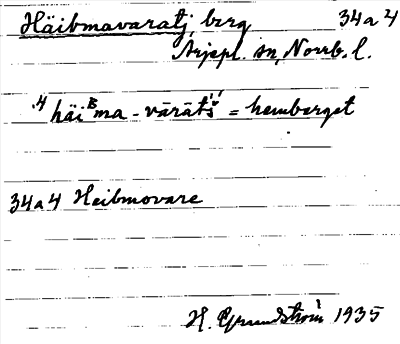 Häibmavaratj, berg 34a4
Arjepl. sn, Norrb. l.
4 häiBma-vārātš́ = hemberget
34a4 Heibmovare
H. Grundström 1935